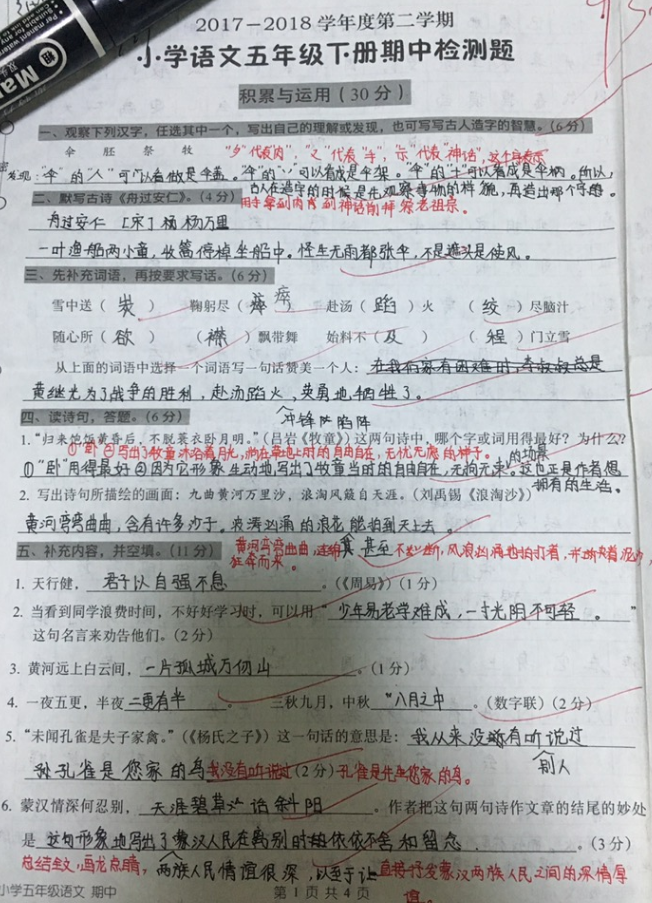 2017-2018 学年度第二学期
小学语文五年级下册期中检测题
积累与运用(30分)
一、观察下列汉字,任选其中一个,写出自己的理解或发现,也可写写古人造字的智慧。(6分)
伞 胚 祭 牧
"夕"代表肉,"又"代表"手","示"代表"神话",这个字表示
发现:"伞"的"人"可以看做是伞盖。"伞"的"丷"可以看成是伞架。"伞"的"十"可以看成是伞柄。所以,
古人在造字的时候是先观察事物的样貌,再造出那个字
用手拿到肉
二、默写古诗《舟过安仁》。(4分)
舟过安仁 [宋] 杨万里
一叶渔船两小童,收篙停棹坐船中。怪生无雨都张伞,不是遮头是使风。
三、先补充词语,再按要求写话。(6分)
雪中送(炭) 鞠躬尽(瘁) 赴汤(蹈)火 (绞)尽脑汁
随心所(欲) (襟)飘带舞 始料不(及) (程)门立雪
从上面的词语中选择一个词语写一句话赞美一个人:
黄继光为了战争的胜利,赴汤蹈火,英勇地牺牲了。
冲锋陷阵
四、读诗句,答题。(6分)
1."归来饱饭黄昏后,不脱蓑衣卧月明。"(吕岩《牧童》)这两句诗中,哪个字或词用得最好?为什么?
①"卧"②写出了牧童沐浴着月光,躺在草地上时的自由自在,无忧无虑的样子。
的场景
①"卧"用得最好②因为它形象生动地写出了牧童当时的自由自在,无拘无束。这也正是作者想
拥有的生活。
2. 写出诗句所描绘的画面:九曲黄河万里沙,浪淘风簸自天涯。(刘禹锡《浪淘沙》)
黄河弯弯曲曲,含有许多沙子。波涛汹涌的浪花能拍到天上去。
五、补充内容,并空填。(11分)
黄河弯弯曲曲,连绵不断,风浪汹涌地拍打着,
狂奔而来。
1. 天行健,君子以自强不息。(《周易》)(1分)
2. 当看到同学浪费时间,不好好学习时,可以用"少年易老学难成,一寸光阴不可轻。"
这句名言来劝告他们。(2分)
3. 黄河远上白云间,一片孤城万仞山。(1分)
4. 一夜五更,半夜二更有半。 三秋九月,中秋"八月之中。(数字联)(2分)
5."未闻孔雀是夫子家禽。"(《杨氏之子》)这一句话的意思是:我从来没有听说过
别人
孔雀是您家的鸟 我没有听说过(2分)孔雀是先生您家的鸟。
6. 蒙汉情深何忍别,天涯碧草话斜阳。作者把这句两句诗作文章的结尾的妙处
是 这句形象地写出了蒙汉人民在离别时的依依不舍和留念。(3分)
总结全文,画龙点睛,两族人民情谊很深,以至于让 直接抒发蒙汉两族人民之间的深情厚
谊。
小学五年级语文 期中
第1页共4页